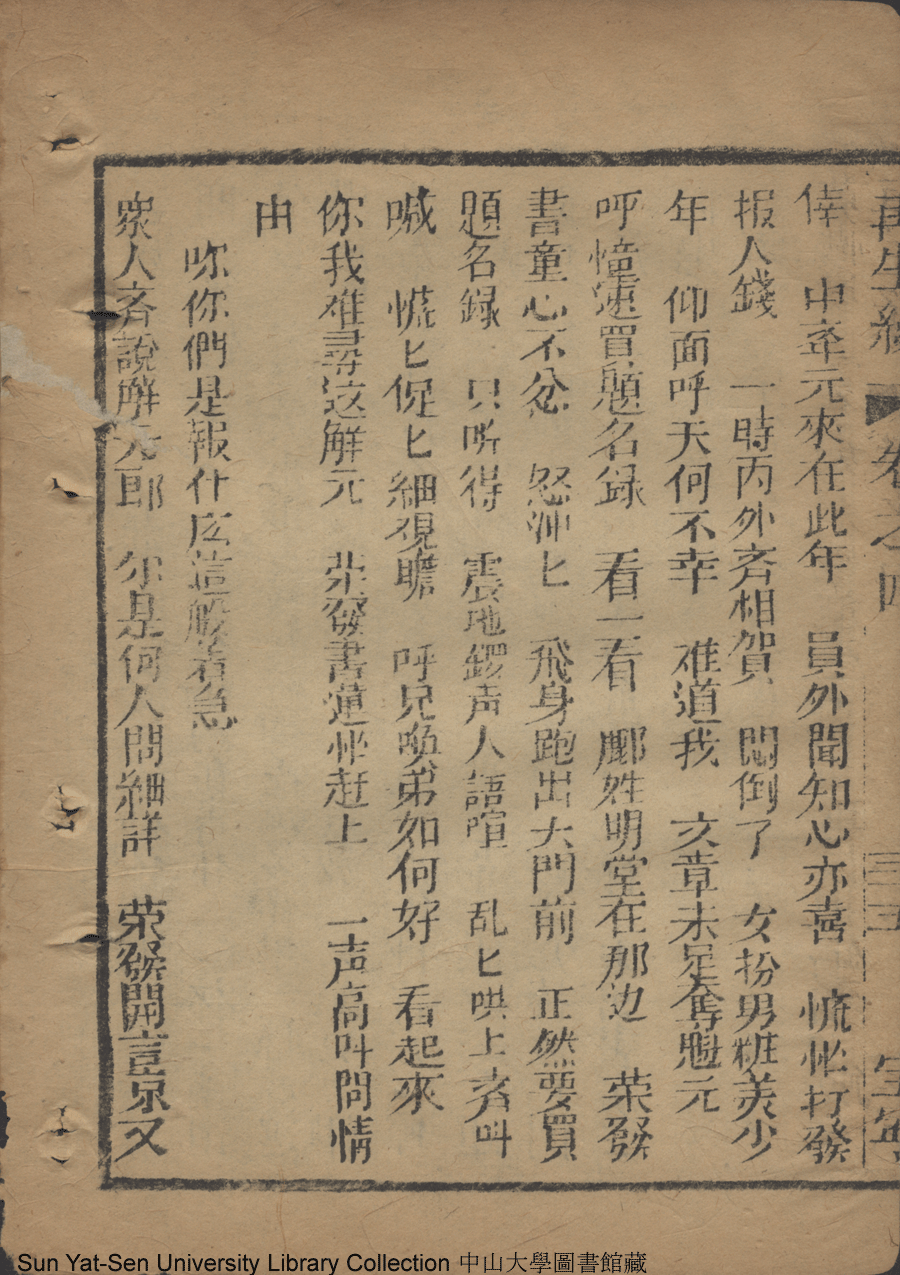 再生緣 卷之四 三五
倖 中逢元來在此年 員外聞知心亦喜 慌忙打發
报人錢 一時內外斉相賀 悶倒了 女扮男粧美少
年 仰面呼天何不幸 难道我 文章未足奪魁元
呼憧速買題名录 看一看 酈姓明堂在那边 荣發
書童心不忿 怒冲匕 飛身跑出大門前 正然要買
題名録 只听得 震地鑼声人語喧 乱匕哄上斉叫
喊 慌匕促匕細观瞻 呼兄喚弟如何好 看起來
你我难尋这解元 荣發書童忙赶上 一声高叫問情
由
㖿你們是報什庅這般着急
衆人斉說解元郎 尔是何人問細詳 荣發開言泉又
Sun Yat-Sen University Library Collection 中山大學圖書館藏